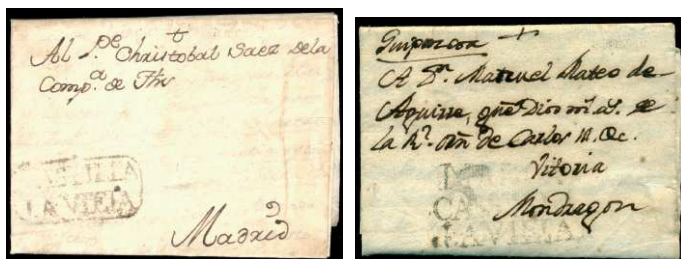 Al Pe Christobal Saez dela
Compa. de Jhs
CASTILLA
LA VIEJA
Madrid
Guipuzcoa
A Dn. Manuel Mateo de
Aguirre, que Dios m. as. de
la Rl. orn de Carlos III. &c.
Vitoria
Mondragon
CA
LA VIEJA